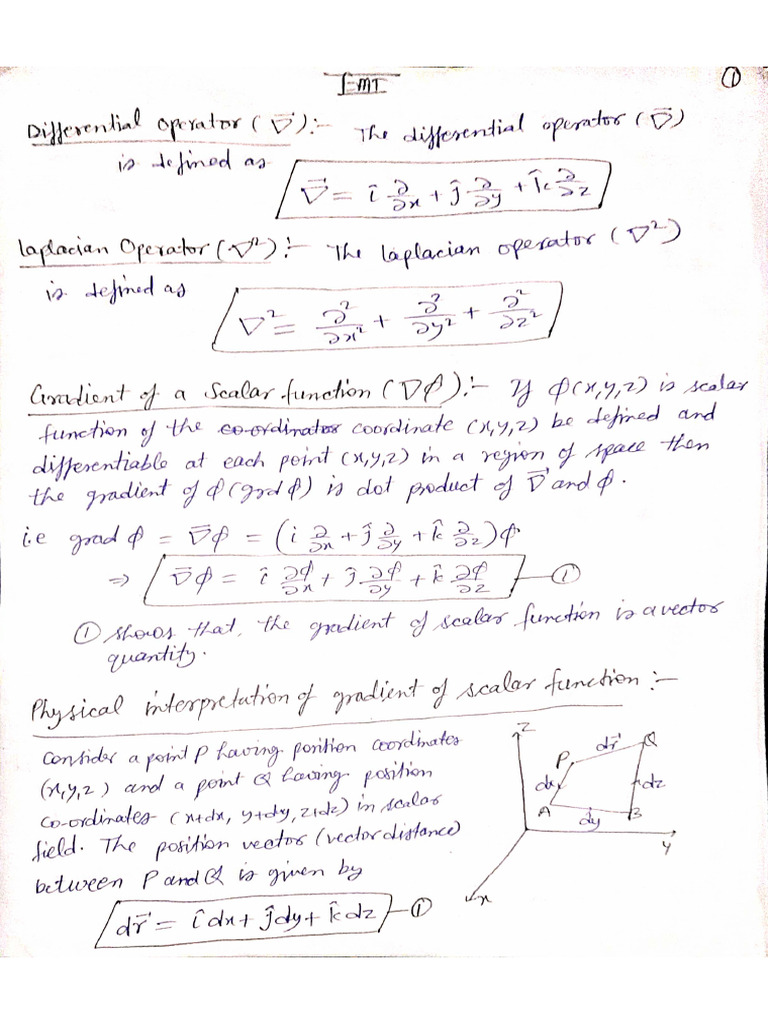 EMT
①
Differential operator (∇⃗):- The differential operator (∇⃗)
is defined as
∇⃗ = î ∂/∂x + ĵ ∂/∂y + k̂ ∂/∂z
Laplacian Operator (∇²):- The Laplacian operator (∇²)
is defined as
∇² = ∂²/∂x² + ∂²/∂y² + ∂²/∂z²
Gradient of a scalar function (∇φ):- If φ(x,y,z) is scalar
function of the co-ordinates coordinate (x,y,z) be defined and
differentiable at each point (x,y,z) in a region of space then
the gradient of φ (grd φ) is dot product of ∇⃗ and φ.
i.e grad φ = ∇⃗φ = (i ∂/∂x + ĵ ∂/∂y + k̂ ∂/∂z)φ
⇒ ∇⃗φ = î ∂φ/∂x + ĵ ∂φ/∂y + k̂ ∂φ/∂z — ①
① shows that, the gradient of scalar function is a vector
quantity.
Physical interpretation of gradient of scalar function :-
Consider a point P having position coordinates
(x,y,z) and a point Q having position
co-ordinates (x+dx, y+dy, z+dz) in scalar
field. The position vector (vector distance)
between P and Q is given by
dr⃗ = î dx + ĵ dy + k̂ dz — ①
Z
dr⃗
Q
P
dx
dz
A
dy
B
Y
x